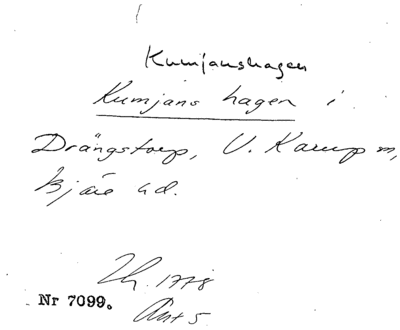 Kumjanshagen
Kumjans hagen i
Drängstorp, V. Karup sn,
Bjäre hd.
Lh. 1778
Nr 7099. Akt 5